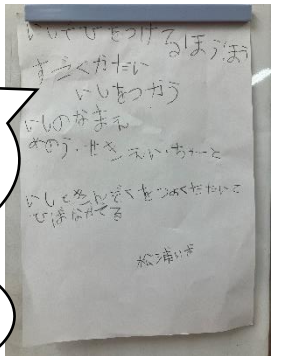 いしでひをつけるほうほう
すごくかたい
いしをつかう
いしのなまえ
めのう・せきえい・ちゃーと
いしときんぞくを
ひばながでる